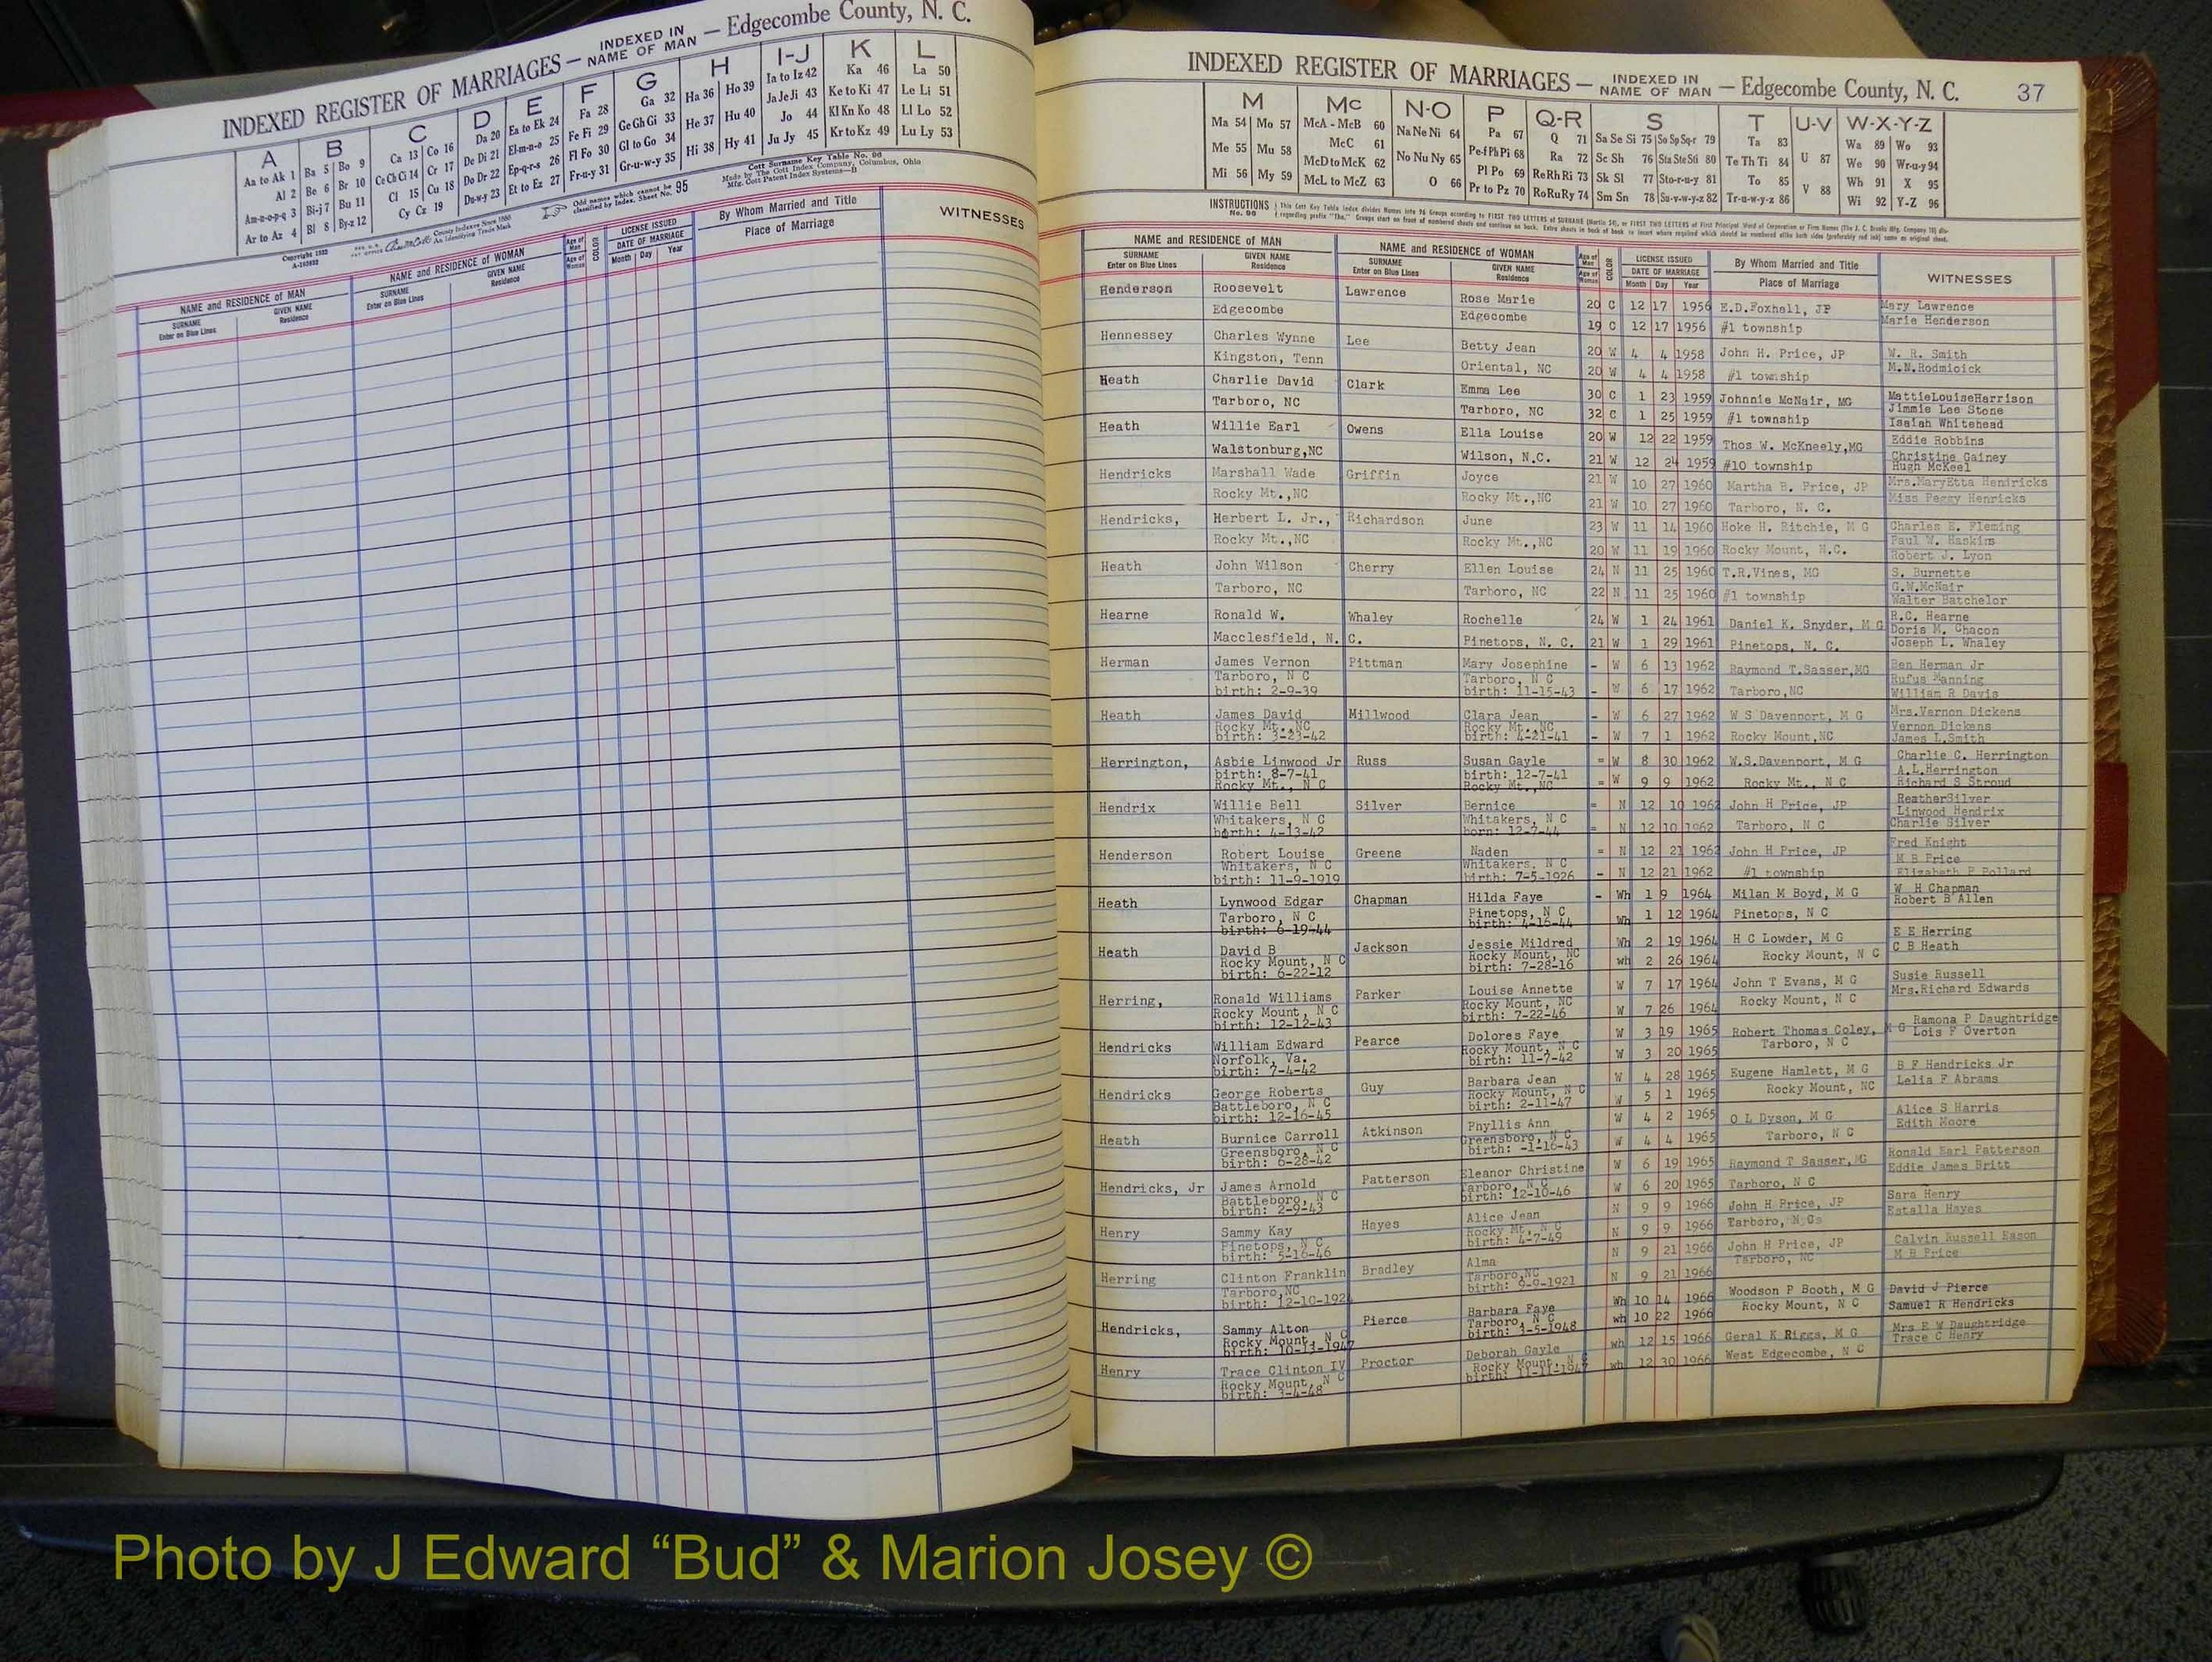 INDEXED REGISTER OF MARRIAGES — INDEXED IN NAME OF MAN — Edgecombe County, N. C.
A B C D E F G H I-J K L
Aa to Ak 1 Ba 5 Bo 9 Ca 13 Co 16 Da 20 Ea to Ek 24 Fa 28 Ga 32 Ha 36 Ho 39 Ia to Iz 42 Ka 46 La 50
Al 2 Be 6 Br 10 Ce Ch Ci 14 Cr 17 De Di 21 El-m-n-o 25 Fe Fi 29 Ge Gh Gi 33 He 37 Hu 40 Ja Je Ji 43 Ke to Ki 47 Le Li 51
Am-n-o-p-q 3 Bi-j 7 Bu 11 Cl 15 Cu 18 Do Dr 22 Ep-q-r-s 26 Fl Fo 30 Gl to Go 34 Hi 38 Hy 41 Jo 44 Kl Kn Ko 48 Ll Lo 52
Ar to Az 4 Bl 8 By-z 12 Cy Cz 19 Du-w-y 23 Et to Ez 27 Fr-u-y 31 Gr-u-w-y 35 Ju Jy 45 Kr to Kz 49 Lu Ly 53
Odd names which cannot be classified by Index. Sheet No. 95
Cott Surname Key Table No. 96
Made by The Cott Index Company, Columbus, Ohio
Mfg. Cott Patent Index Systems—B
NAME and RESIDENCE of MAN
SURNAME
Enter on Blue Lines
GIVEN NAME
Residence
NAME and RESIDENCE OF WOMAN
SURNAME
Enter on Blue Lines
GIVEN NAME
Residence
Age of Man
Age of Woman
COLOR
LICENSE ISSUED
DATE OF MARRIAGE
Month Day Year
By Whom Married and Title
Place of Marriage
WITNESSES
INDEXED REGISTER OF MARRIAGES — INDEXED IN NAME OF MAN — Edgecombe County, N. C. 37
M Mc N-O P Q-R S T U-V W-X-Y-Z
Ma 54 Mo 57 McA - McB 60 Na Ne Ni 64 Pa 67 Q 71 Sa Se Si 75 So Sp Sq-r 79 Ta 83 U 87 Wa 89 Wo 93
Me 55 Mu 58 McC 61 No Nu Ny 65 Pe-f Ph Pi 68 Ra 72 Sc Sh 76 Sta Ste Sti 80 Te Th Ti 84 V 88 We 90 Wr-u-y 94
Mi 56 My 59 McD to McK 62 O 66 Pl Po 69 Re Rh Ri 73 Sk Sl 77 Sto-r-u-y 81 To 85 Wh 91 X 95
McL to McZ 63 Pr to Pz 70 Ro Ru Ry 74 Sm Sn 78 Su-v-w-y-z 82 Tr-u-w-y-z 86 Wi 92 Y-Z 96
NAME and RESIDENCE OF MAN
SURNAME
Enter on Blue Lines
GIVEN NAME
Residence
NAME and RESIDENCE OF WOMAN
SURNAME
Enter on Blue Lines
GIVEN NAME
Residence
Age of Man
Age of Woman
COLOR
LICENSE ISSUED
DATE OF MARRIAGE
Month Day Year
By Whom Married and Title
Place of Marriage
WITNESSES
Henderson Roosevelt Lawrence Rose Marie 20 C 12 17 1956 E.D.Foxhall, JP Mary Lawrence
Edgecombe Edgecombe 19 C 12 17 1956 #1 township Marie Henderson
Hennessey Charles Wynne Lee Betty Jean 20 W 4 4 1958 John H. Price, JP W. R. Smith
Kingston, Tenn Oriental, NC 20 W 4 4 1958 #1 township M.N.Rodmioick
Heath Charlie David Clark Emma Lee 30 C 1 23 1959 Johnnie McNair, MG MattieLouiseHarrison
Jimmie Lee Stone
Tarboro, NC Tarboro, NC 32 C 1 25 1959 #1 township Isaiah Whitehead
Heath Willie Earl Owens Ella Louise 20 W 12 22 1959 Thos W. McKneely,MG Eddie Robbins
Christine Gainey
Walstonburg,NC Wilson, N.C. 21 W 12 24 1959 #10 township Hugh McKeel
Hendricks Marshall Wade Griffin Joyce 21 W 10 27 1960 Martha B. Price, JP Mrs.MaryEtta Hendricks
Rocky Mt.,NC Rocky Mt.,NC 21 W 10 27 1960 Tarboro, N. C. Miss Peggy Henricks
Hendricks, Herbert L. Jr., Richardson June 23 W 11 14 1960 Hoke H. Ritchie, M G Charles E. Fleming
Paul W. Haskins
Rocky Mt.,NC Rocky Mt.,NC 20 W 11 19 1960 Rocky Mount, N.C. Robert J. Lyon
Heath John Wilson Cherry Ellen Louise 24 N 11 25 1960 T.R.Vines, MG S. Burnette
G.W.McNair
Tarboro, NC Tarboro, NC 22 N 11 25 1960 #1 township Walter Batchelor
Hearne Ronald W. Whaley Rochelle 24 W 1 24 1961 Daniel K. Snyder, M G R.C. Hearne
Doris M. Chacon
Macclesfield, N. C. Pinetops, N. C. 21 W 1 29 1961 Pinetops, N. C. Joseph L. Whaley
Herman James Vernon Pittman Mary Josephine - W 6 13 1962 Raymond T.Sasser,MG Ben Herman Jr
Tarboro, N C Tarboro, N C Rufus Manning
birth: 2-9-39 birth: 11-15-43 - W 6 17 1962 Tarboro,NC William R Davis
Heath James David Millwood Clara Jean - W 6 27 1962 W S Davenport, M G Mrs.Vernon Dickens
Rocky Mt., NC Rocky Mt.,NC Vernon Dickens
birth: 3-23-42 birth: 4-21-41 - W 7 1 1962 Rocky Mount,NC James L.Smith
Herrington, Asbie Linwood Jr Russ Susan Gayle = W 8 30 1962 W.S.Davenport, M G Charlie C. Herrington
birth: 8-7-41 birth: 12-7-41 A.L.Herrington
Rocky Mt., N C Rocky Mt., NC = W 9 9 1962 Rocky Mt., N C Richard S Stroud
Hendrix Willie Bell Silver Bernice = N 12 10 1962 John H Price, JP ReatherSilver
Whitakers, N C Whitakers, N C Linwood Hendrix
birth: 4-13-42 born: 12-7-44 = N 12 10 1962 Tarboro, N C Charlie Silver
Henderson Robert Louise Greene Naden = N 12 21 1962 John H Price, JP Fred Knight
Whitakers, N C Whitakers, N C M B Price
birth: 11-9-1919 birth: 7-5-1926 - N 12 21 1962 #1 township Elizabeth P Pollard
Heath Lynwood Edgar Chapman Hilda Faye - Wh 1 9 1964 Milan M Boyd, M G W H Chapman
Tarboro, N C Pinetops, N C Wh 1 12 1964 Pinetops, N C Robert B Allen
birth: 6-19-44 birth: 4-16-44
Heath David B Jackson Jessie Mildred Wh 2 19 1964 H C Lowder, M G E E Herring
Rocky Mount, N C Rocky Mount, NC wh 2 26 1964 Rocky Mount, N C C B Heath
birth: 6-22-12 birth: 7-28-16
Herring, Ronald Williams Parker Louise Annette W 7 17 1964 John T Evans, M G Susie Russell
Rocky Mount, N C Rocky Mount, NC W 7 26 1964 Rocky Mount, N C Mrs.Richard Edwards
birth: 12-12-43 birth: 7-22-46
Hendricks William Edward Pearce Dolores Faye W 3 19 1965 Robert Thomas Coley, M G Ramona P Daughtridge
Norfolk, Va. Rocky Mount, N C W 3 20 1965 Tarboro, N C Lois F Overton
birth: 7-4-42 birth: 11-7-42
Hendricks George Roberts Guy Barbara Jean W 4 28 1965 Eugene Hamlett, M G B F Hendricks Jr
Battleboro, N C Rocky Mount, N C W 5 1 1965 Rocky Mount, NC Lelia F Abrams
birth: 12-16-45 birth: 2-11-47
Heath Burnice Carroll Atkinson Phyllis Ann W 4 2 1965 O L Dyson, M G Alice S Harris
Greensboro, N C Greensboro, N C W 4 4 1965 Tarboro, N C Edith Moore
birth: 6-28-42 birth: -1-16-43
Hendricks, Jr James Arnold Patterson Eleanor Christine W 6 19 1965 Raymond T Sasser,MG Ronald Earl Patterson
Battleboro, N C Tarboro, N C W 6 20 1965 Tarboro, N C Eddie James Britt
birth: 2-9-43 birth: 12-10-46
Henry Sammy Kay Hayes Alice Jean N 9 9 1966 John H Price, JP Sara Henry
Pinetops, N C Rocky Mt, N C N 9 9 1966 Tarboro, N C Estalla Hayes
birth: 5-16-46 birth: 4-7-49
Herring Clinton Franklin Bradley Alma N 9 21 1966 John H Price, JP Calvin Russell Eason
Tarboro,NC Tarboro,NC N 9 21 1966 Tarboro, NC M B Price
birth: 12-10-192 birth: 9-9-1921
Hendricks, Sammy Alton Pierce Barbara Faye Wh 10 14 1966 Woodson P Booth, M G David J Pierce
Rocky Mount, N C Tarboro, N C wh 10 22 1966 Rocky Mount, N C Samuel R Hendricks
birth: 10-13-1947 birth: 3-5-1948
Henry Trace Clinton IV Proctor Deborah Gayle wh 12 15 1966 Geral K Riggs, M G Mrs E W Daughtridge
Rocky Mount, N C Rocky Mount, N C wh 12 30 1966 West Edgecombe, N C Trace C Henry
birth: 3-4-48 birth: 11-11-1947
Photo by J Edward “Bud” & Marion Josey ©